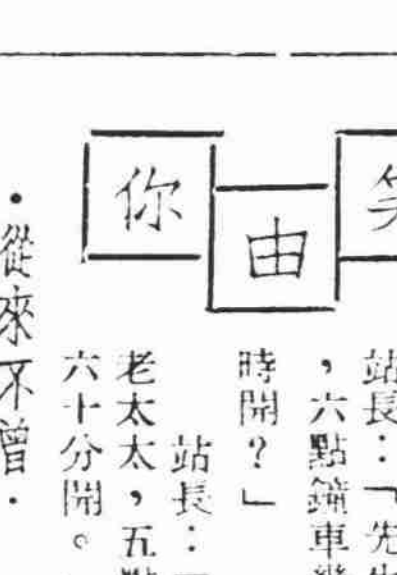 笑由你
站長：「先生
，六點鐘車幾
時開？」
站長：「
老太太，五點
六十分開。
・從來不曾・